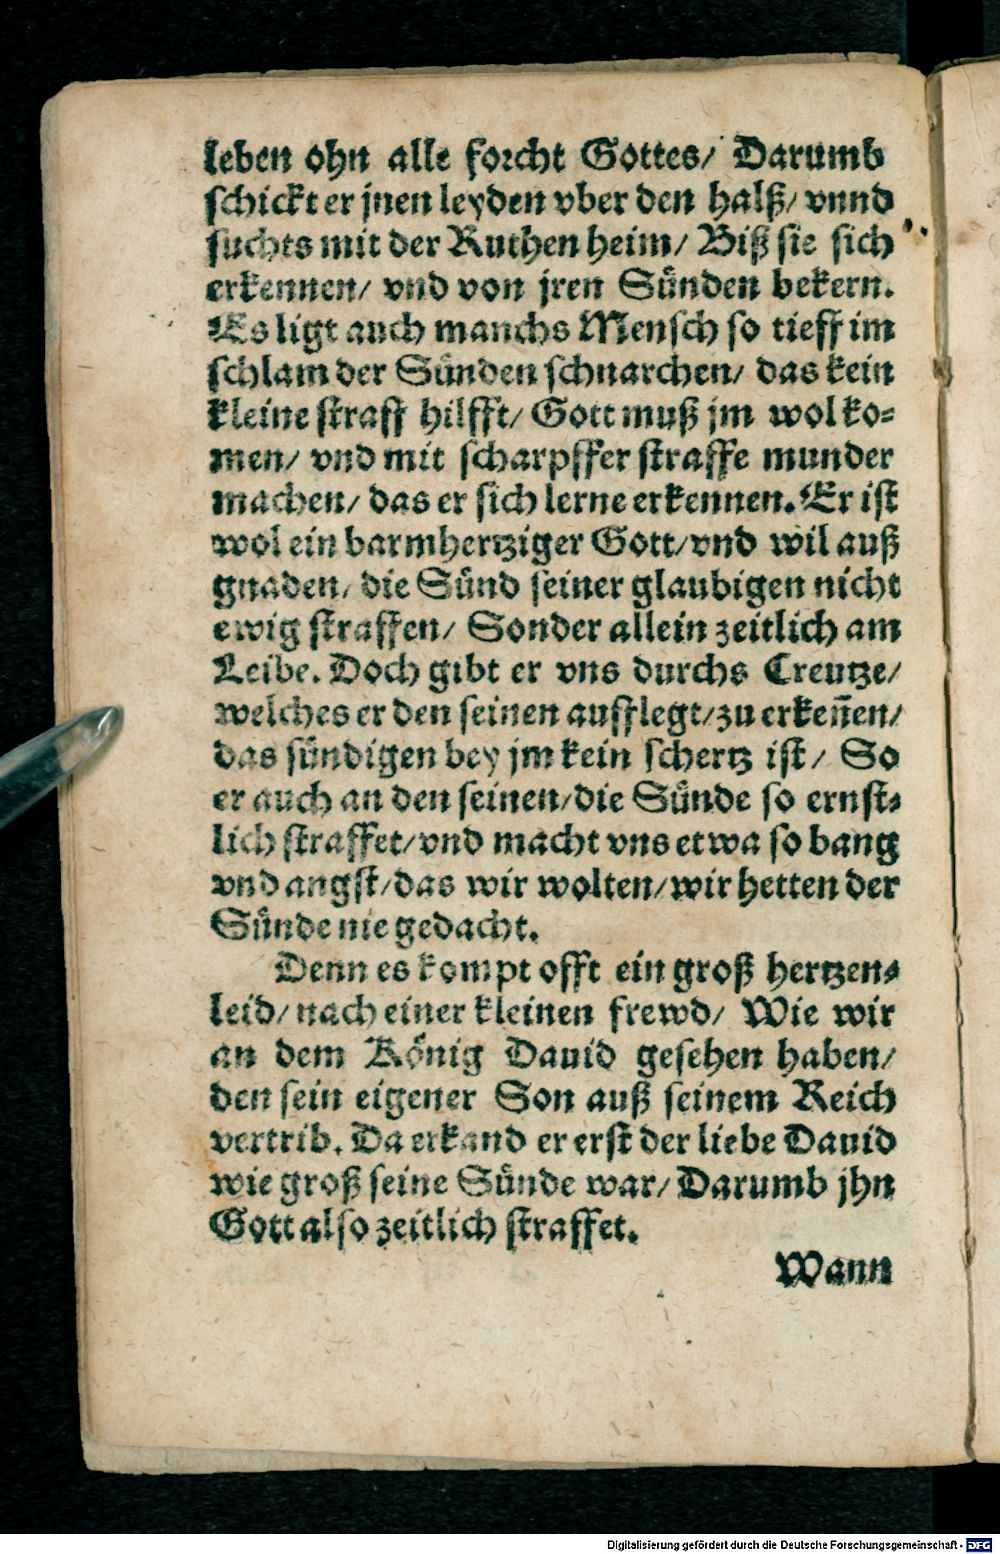 leben ohn alle forcht Gottes/ Darumb
schickt er jnen leyden vber den halß/ vnnd
suchts mit der Ruthen heim/ Biß sie sich
erkennen/ vnd von jren Sünden bekern.
Es ligt auch manchs Mensch so tieff im
schlam der Sünden schnarchen/ das kein
kleine straff hilfft/ Gott muß jm wol ko-
men/ vnd mit scharpffer straffe munder
machen/ das er sich lerne erkennen. Er ist
wol ein barmhertziger Gott/ vnd wil auß
gnaden/ die Sünd seiner glaubigen nicht
ewig straffen/ Sonder allein zeitlich am
Leibe. Doch gibt er vns durchs Creutze/
welches er den seinen aufflegt/ zu erkeñen/
das sündigen bey jm kein schertz ist/ So
er auch an den seinen/ die Sünde so ernst-
lich straffet/ vnd macht vns etwa so bang
vnd angst/ das wir wolten/ wir hetten der
Sünde nie gedacht.
Denn es kompt offt ein groß hertzen-
leid/ nach einer kleinen frewd/ Wie wir
an dem König Dauid gesehen haben/
den sein eigener Son auß seinem Reich
vertrib. Da erkand er erst der liebe Dauid
wie groß seine Sünde war/ Darumb jhn
Gott also zeitlich straffet.
Wann
Digitalisierung gefördert durch die Deutsche Forschungsgemeinschaft - DFG